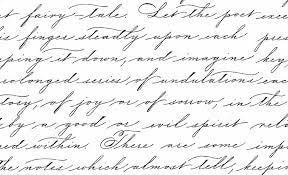 t fairy-tale. Let the poet exce
is finger steadily upon each pres
ping it down, and imagine key
rolonged series of undulations each
tory, of joy or of sorrow, in the
by a good or evil spirit relea
red within. There are some imp
the notes which almost tell, keepin